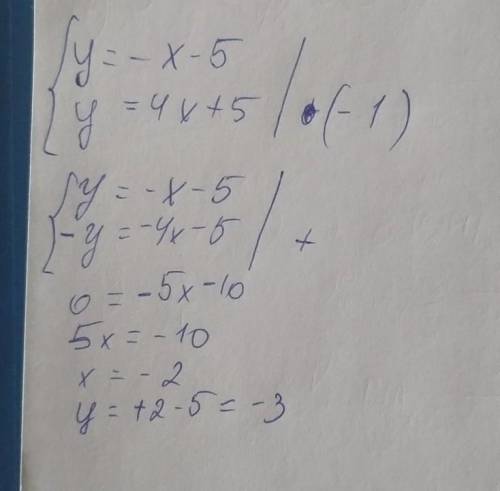 {y = -x - 5
y = 4x + 5 | • (-1)
{y = -x - 5
-y = -4x - 5 | +
0 = -5x - 10
5x = -10
x = -2
y = +2 - 5 = -3